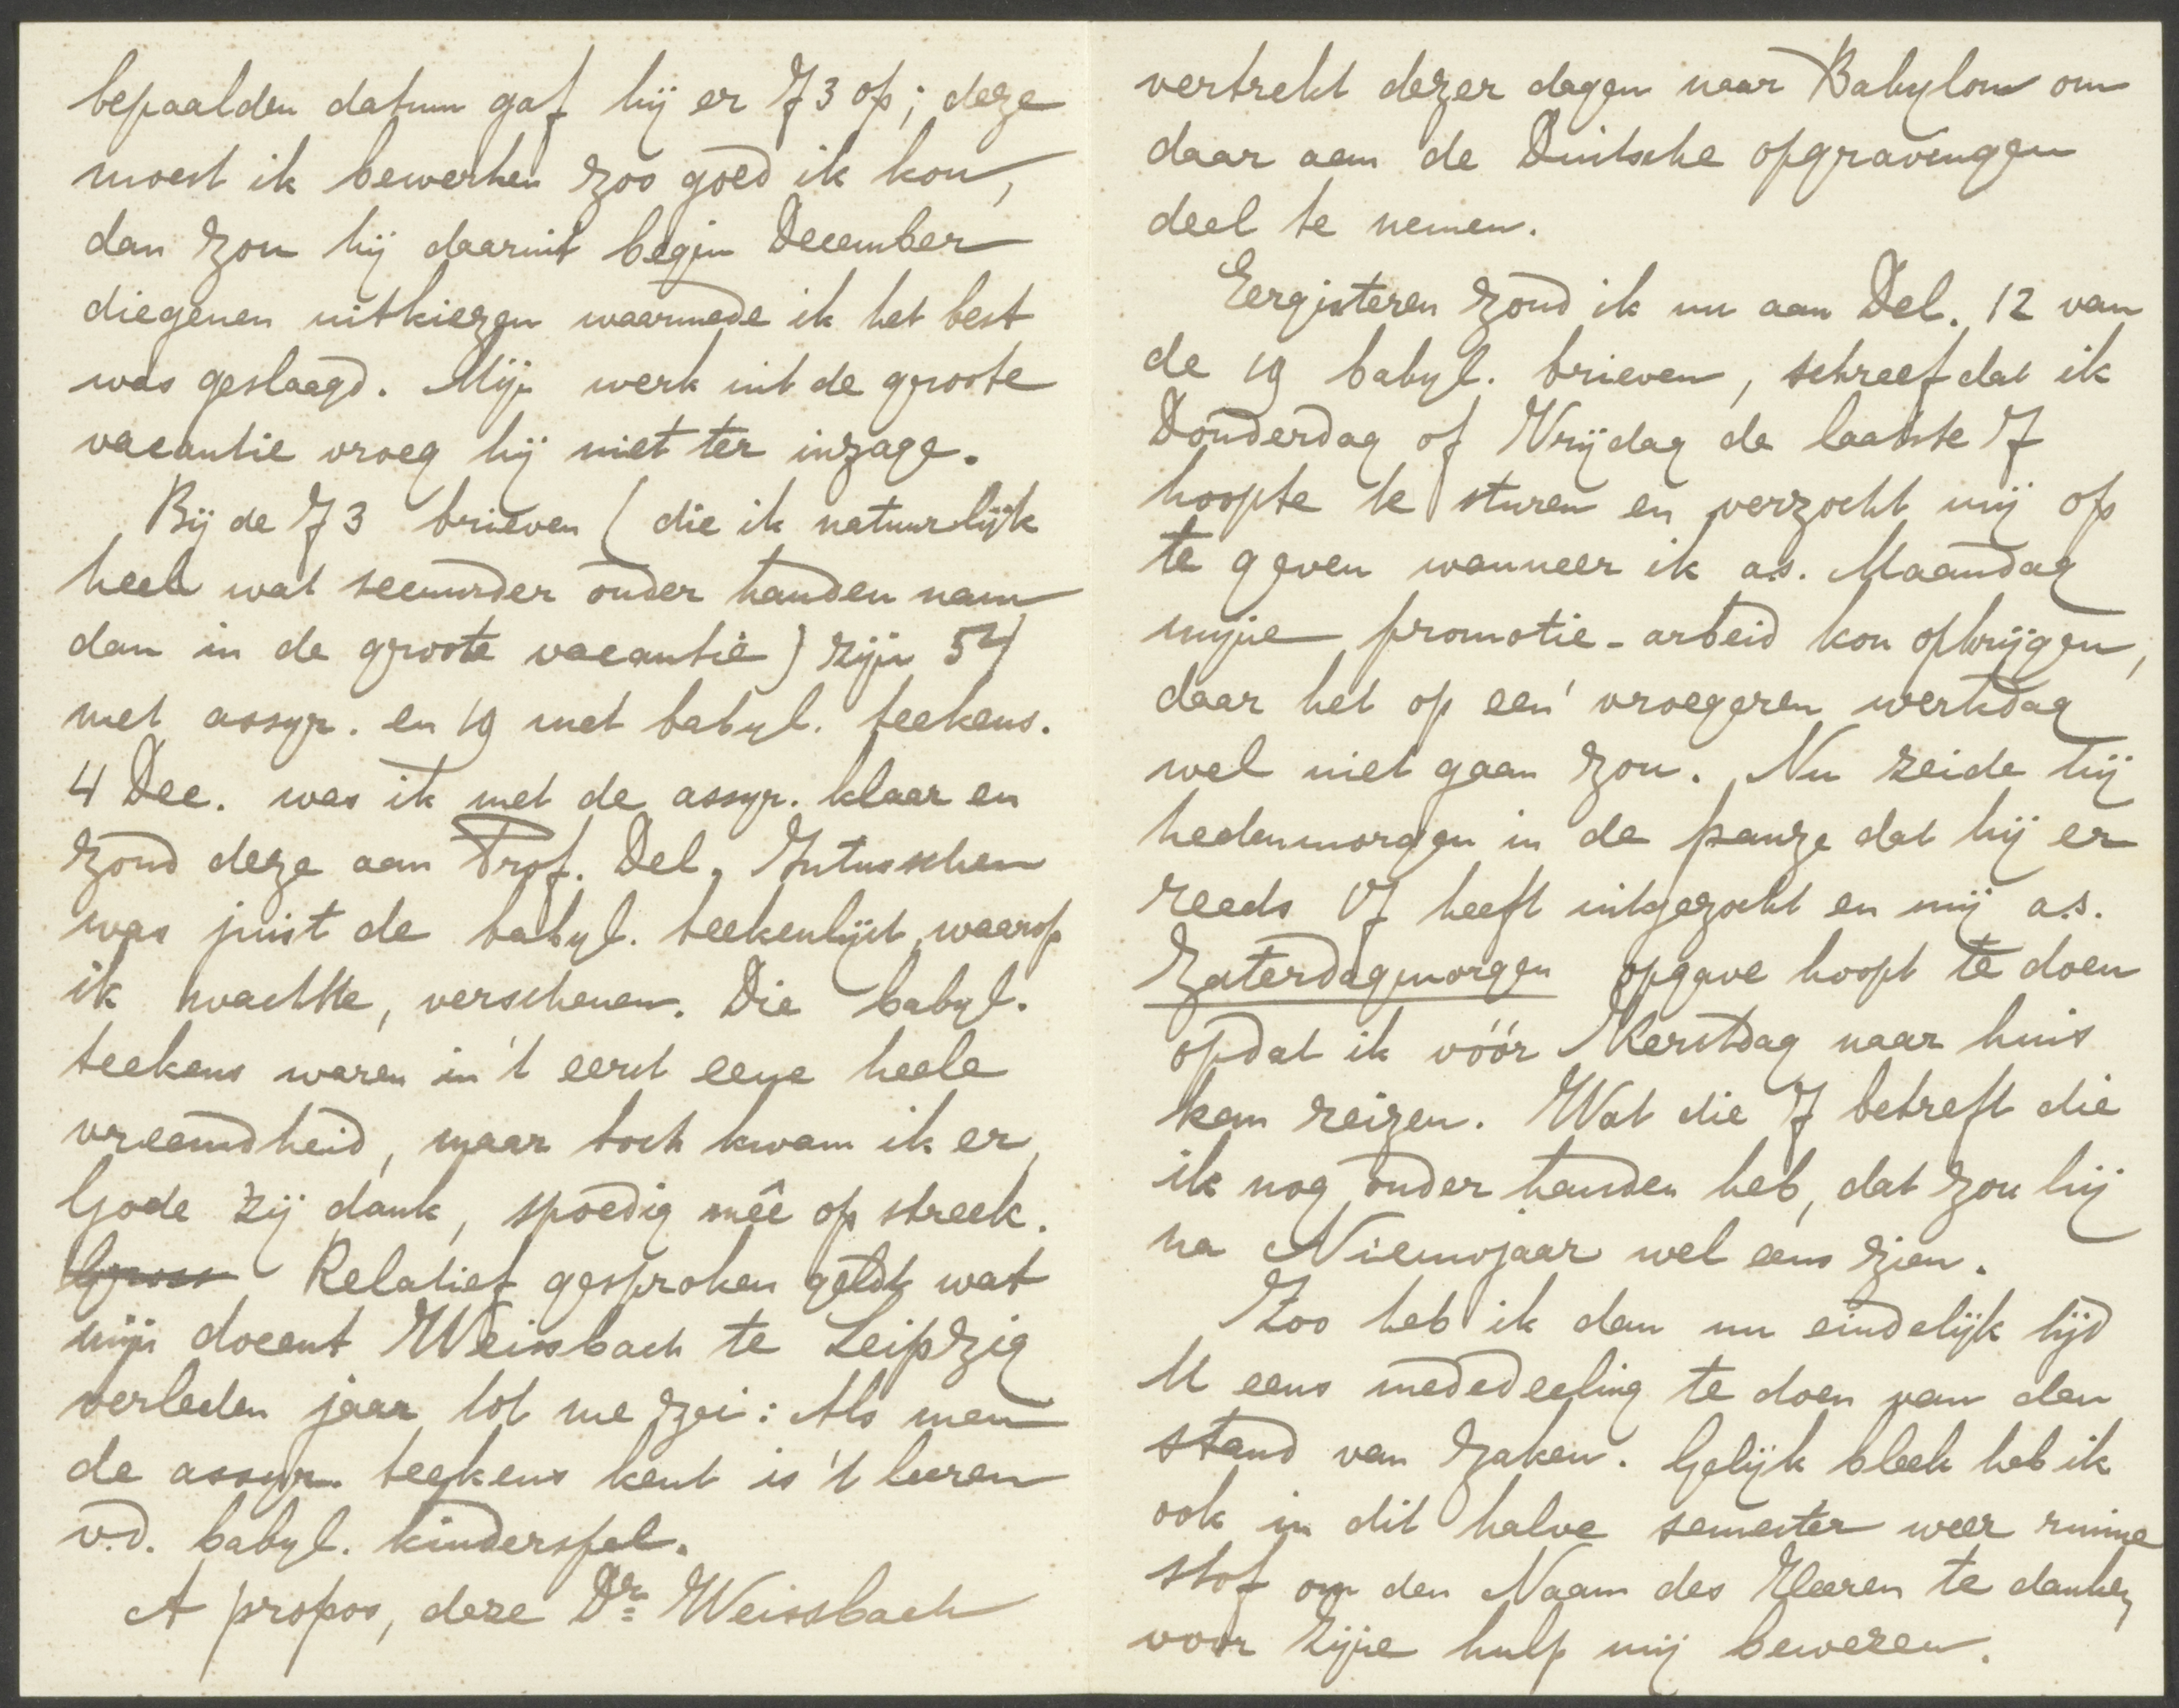 bepaalden datum gaf hij er 73 op; deze
moest ik bewerken zoo goed ik kon,
dan zou hij daaruit begin December
diegenen uitkiezen waarmede ik het best
was geslaagd. Mijn werk uit de groote
vacantie vroeg hij niet ter inzage.
Bij de 73 brieven (die ik natuurlijk
heel wat secuurder onder handen nam
dan in de groote vacantie) zijn 54
met assyr. en 19 met babyl. teekens.
4 Dec. was ik met de assyr. klaar en
zond deze aan Prof. Del. Intusschen
was juist de babyl. teekenlijst, waarop
ik wachtte, verschenen. Die babyl.
teekens waren in 't eerst eene heele
vreemdheid, maar toch kwam ik er,
Gode zij dank, spoedig meê op streek.
Relatief gesproken geldt wat
mijn docent Weissbach te Leipzig
verleden jaar tot me zei: Als men
de assyr. teekens kent is 't leeren
v.d. babyl. kinderspel.
A propos, deze Dr. Weissbach
vertrekt dezer dagen naar Babylon om
daar aan de Duitsche opgravingen
deel te nemen.
Eergisteren zond ik nu aan Del. 12 van
de 19 babyl. brieven, schreef dat ik
Donderdag of Vrijdag de laatste 7
hoopte te sturen en verzocht mij op
te geven wanneer ik a.s. Maandag
mijne promotie-arbeid kon opkrijgen,
daar het op een vroegeren werkdag
wel niet gaan zou. Nu zeide hij
hedenmorgen in de pauze dat hij er
reeds 17 heeft uitgezocht en mij a.s.
Zaterdagmorgen opgave hoopt te doen
opdat ik vóór Kerstdag naar huis
kan reizen. Wat die 7 betreft die
ik nog onder handen heb, dat zou hij
na Nieuwjaar wel eens zien.
Zoo heb ik dan nu eindelijk tijd
U eens mededeeling te doen van den
stand van zaken. Gelijk bleek heb ik
ook in dit halve semester weer ruime
stof om den Naam des Heeren te danken
voor zijne hulp mij bewezen.